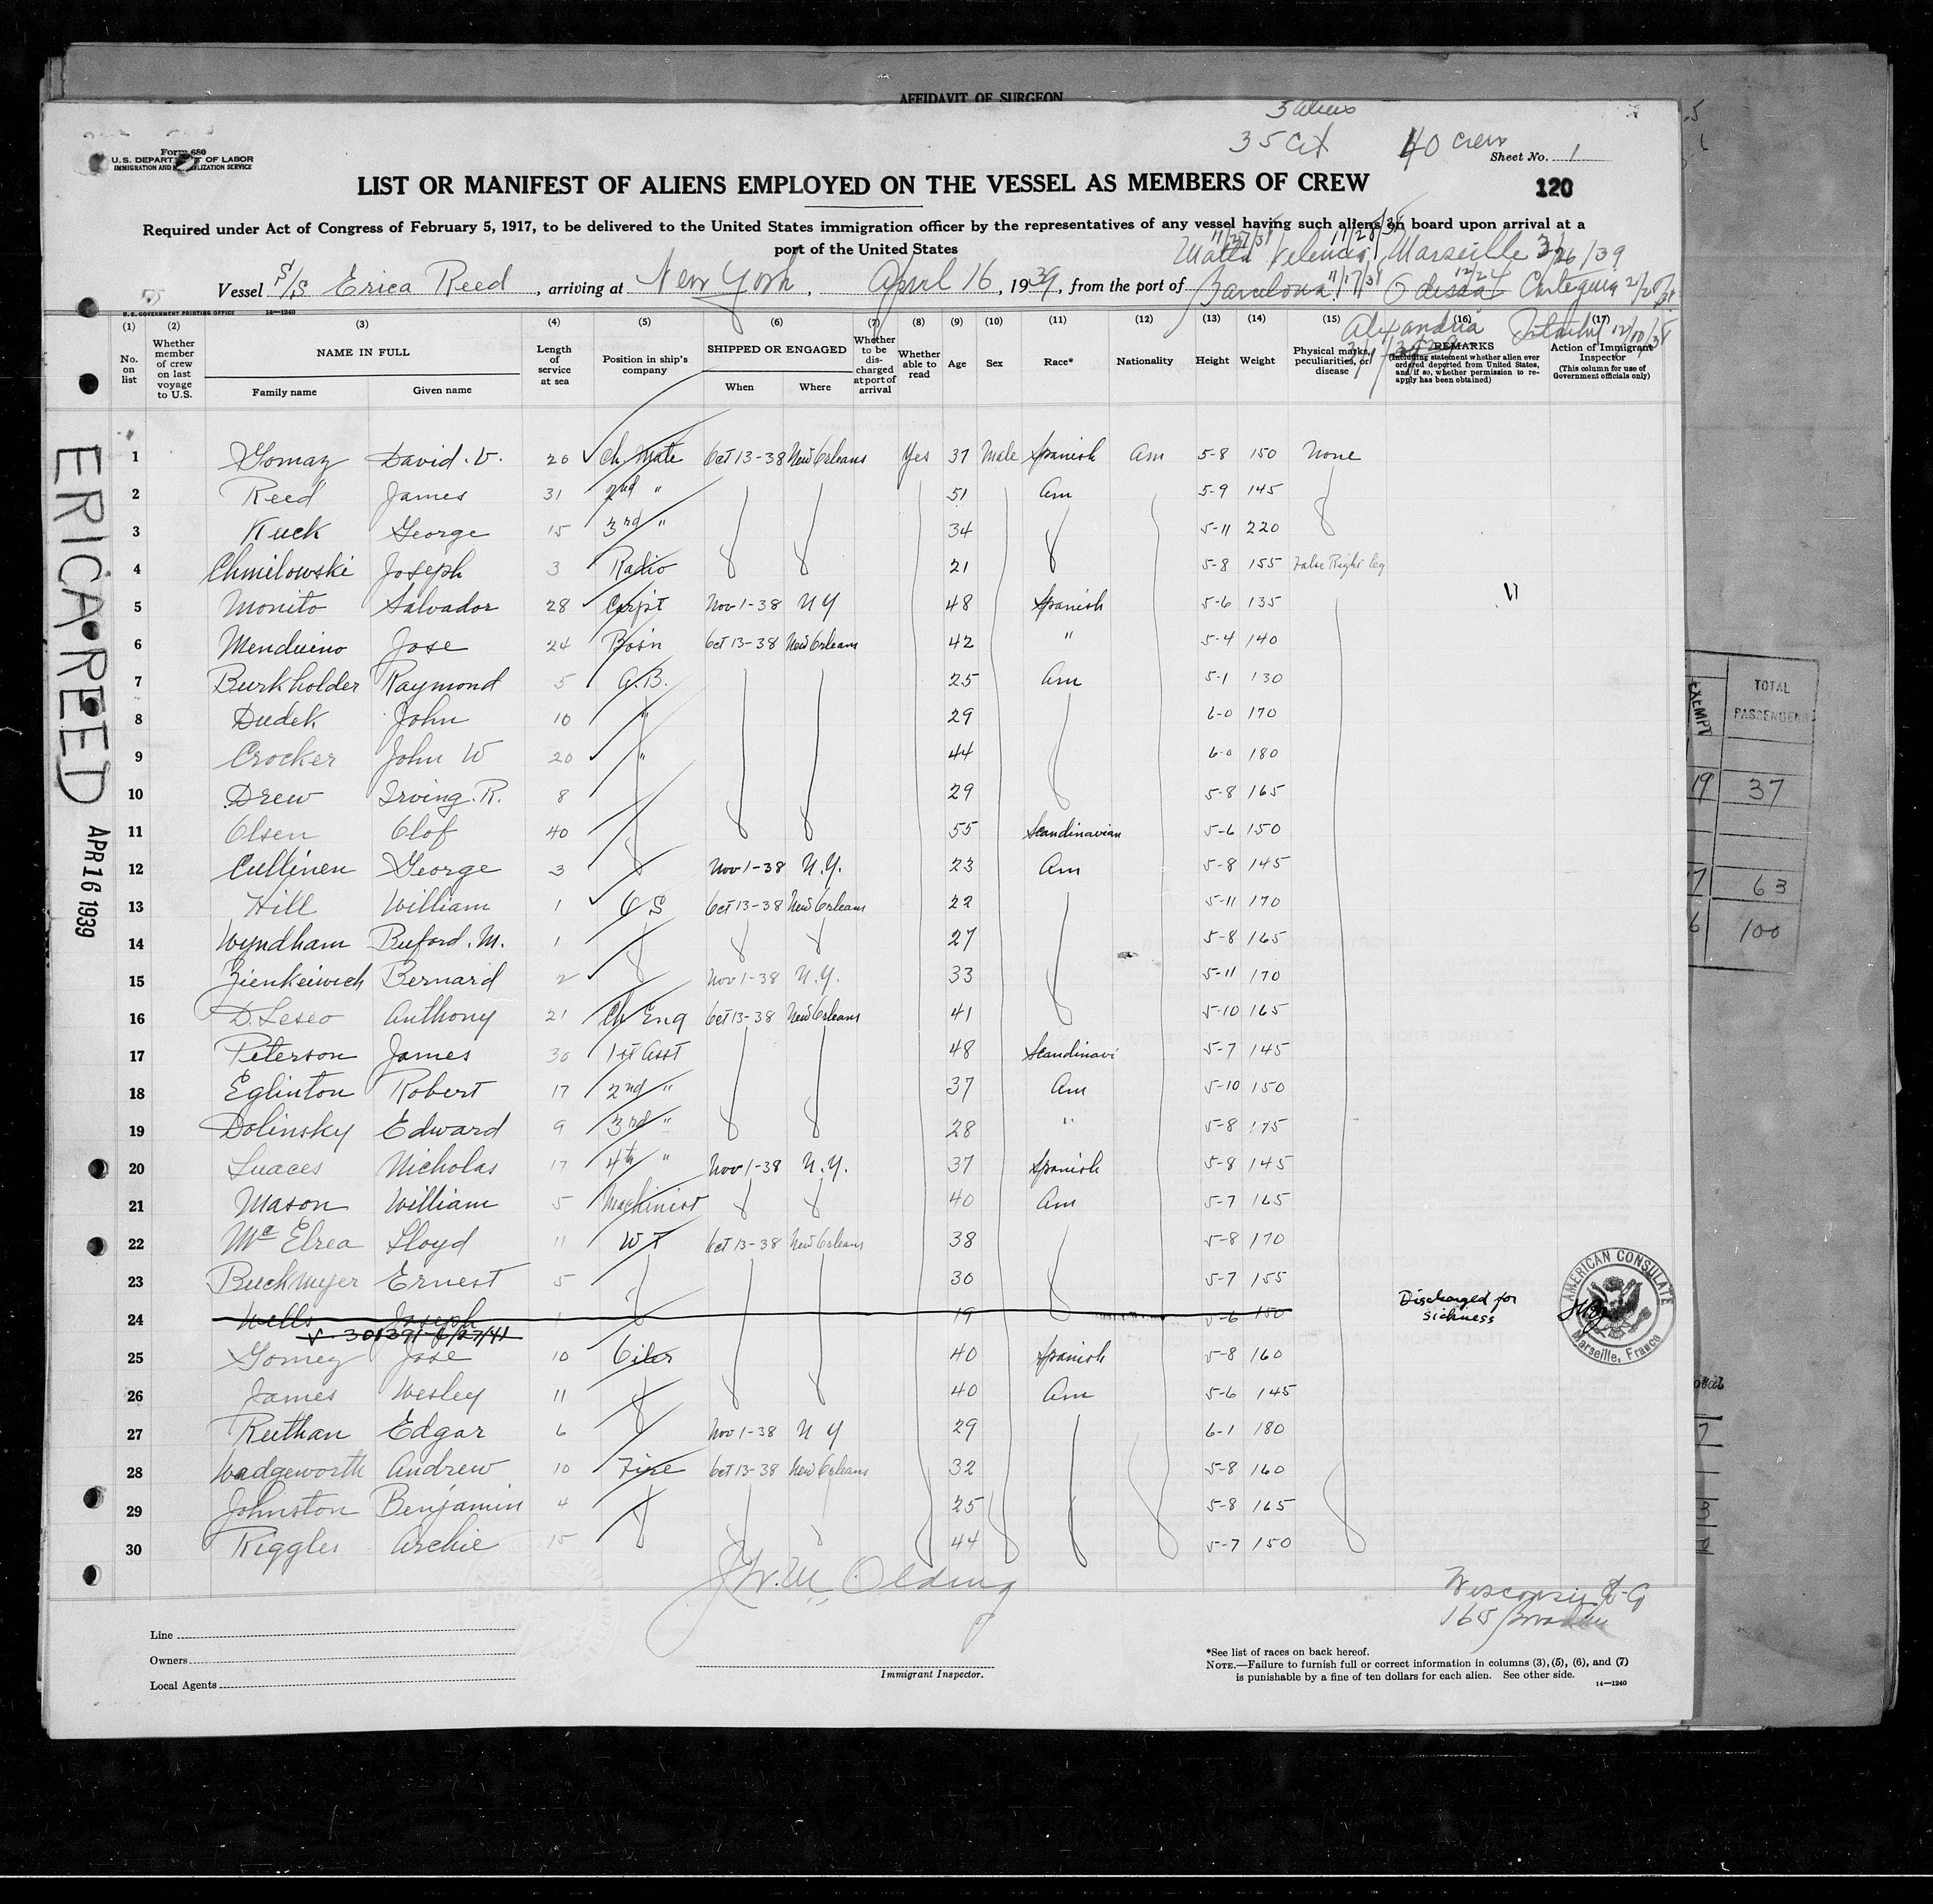 AFFIDAVIT OF SURGEON
3 aliens
35 Cit 40 crew
Form 680
U.S. DEPARTMENT OF LABOR
IMMIGRATION AND NATURALIZATION SERVICE
Sheet No. 1
LIST OR MANIFEST OF ALIENS EMPLOYED ON THE VESSEL AS MEMBERS OF CREW
120
Required under Act of Congress of February 5, 1917, to be delivered to the United States immigration officer by the representatives of any vessel having such aliens on board upon arrival at a
port of the United States
11/27/38 11/28/38
Malta Valencia Marseille 3/26/39
Vessel S/S Erica Reed, arriving at New York, April 16, 1939, from the port of Barcelona 11/17/38 Odessa 12/24 Cartegena
Alexandria
U.S. GOVERNMENT PRINTING OFFICE 14—1240
(1) (2) (3) (4) (5) (6) (7) (8) (9) (10) (11) (12) (13) (14) (15) (16) (17)
No. on list
Whether member of crew on last voyage to U.S.
NAME IN FULL
Family name Given name
Length of service at sea
Position in ship's company
SHIPPED OR ENGAGED
When Where
Whether to be discharged at port of arrival
Whether able to read
Age
Sex
Race*
Nationality
Height
Weight
Physical marks, peculiarities, or disease
REMARKS
(Including statement whether alien ever ordered deported from United States, and if so, whether permission to reapply has been obtained)
Action of Immigrant Inspector
(This column for use of Government officials only)
1 Gomaz David. V. 20 Ch Mate Oct 13-38 New Orleans Yes 37 Male Spanish Am 5-8 150 None
2 Reed James 31 2nd " 51 Am 5-9 145
3 Kuck George 15 3rd " 34 5-11 220
4 Chmilowski Joseph 3 Radio 21 5-8 155 False Right leg
5 Monito Salvador 28 Carpt Nov 1-38 N Y 48 Spanish 5-6 135
6 Menduino Jose 24 Bosn Oct 13-38 New Orleans 42 " 5-4 140
7 Burkholder Raymond 5 A.B. 25 Am 5-1 130
8 Dudek John 10 " 29 6-0 170
9 Crocker John W 20 " 44 6-0 180
10 Drew Irving. R. 8 29 5-8 165
11 Olsen Olof 40 55 Scandinavian 5-6 150
12 Cullinen George 3 Nov 1-38 N.Y. 23 Am 5-8 145
13 Hill William 1 O S Oct 13-38 New Orleans 22 5-11 170
14 Wyndham Buford. M. 1 27 5-8 165
15 Zienkeiwich Bernard 2 Nov 1-38 N.Y. 33 5-11 170
16 D.Leseo Anthony 21 Ch Eng Oct 13-38 New Orleans 41 5-10 165
17 Peterson James 30 1st Asst 48 Scandinavi 5-7 145
18 Eglinton Robert 17 2nd " 37 Am 5-10 150
19 Dolinsky Edward 9 3rd " 28 " 5-8 175
20 Luaces Nicholas 17 4th " Nov 1-38 N.Y. 37 Spanish 5-8 145
21 Mason William 5 Machinist 40 Am 5-7 165
22 Mc Elrea Lloyd 11 W T Oct 13-38 New Orleans 38 5-8 170
23 Buckmyer Ernest 5 30 5-7 155
24 Wells Joseph 1 19 5-6 150 Discharged for sickness
V-301391-6/27/41
25 Gomez Jose 10 Oiler 40 Spanish 5-8 160
26 James Wesley 11 40 Am 5-6 145
27 Ruthan Edgar 6 Nov 1-38 N Y 29 6-1 180
28 Wadgeworth Andrew 10 Fire Oct 13-38 New Orleans 32 5-8 160
29 Johnston Benjamin 4 25 5-8 165
30 Riggles Archie 15 44 5-7 150
AMERICAN CONSULATE
Marseille, France
ERICA REED
APR 16 1939
Olding
165 Broadway
Line
Owners
Local Agents
Immigrant Inspector.
*See list of races on back hereof.
NOTE.—Failure to furnish full or correct information in columns (3), (5), (6), and (7)
is punishable by a fine of ten dollars for each alien. See other side.
14—1240
EXEMPT
TOTAL
PASSENGERS
19 37
7 63
6 100